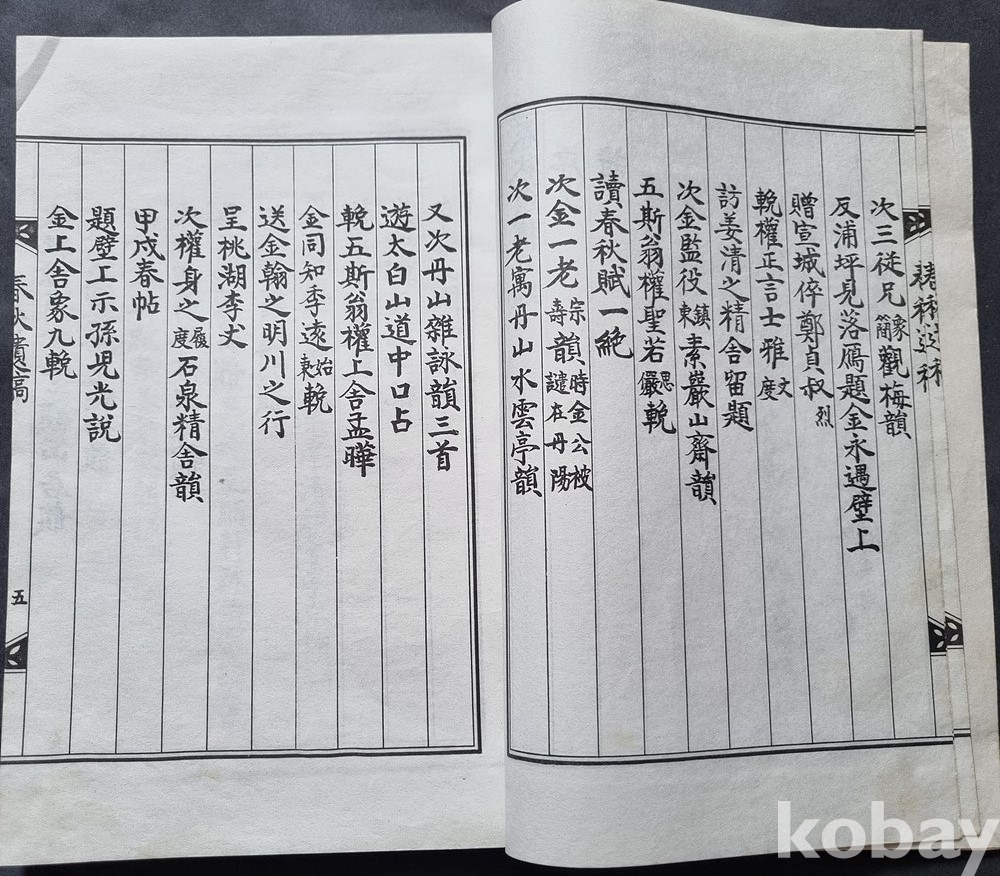 次三從兄象蘭觀梅韻
反浦坪見落鴈題金永遇壁上
贈宣城倅鄭貞叔烈
輓權正言士雅文度
訪姜清之精舍留題
次金監役鎮東素巖山齋韻
五斯翁權聖若思儼輓
讀春秋賦一絕
次金一老宗壽韻時金公被譴在丹陽
次一老寓丹山水雲亭韻
又次丹山雜詠韻三首
遊太白山道中口占
輓五斯翁權上舍孟曄
金同知季遠始東輓
送金翰之明川之行
呈桃湖李丈
次權身之履度石泉精舍韻
甲戌春帖
題壁工示孫兒光說
金上舍象九輓
春秋遺稿
五
kobay